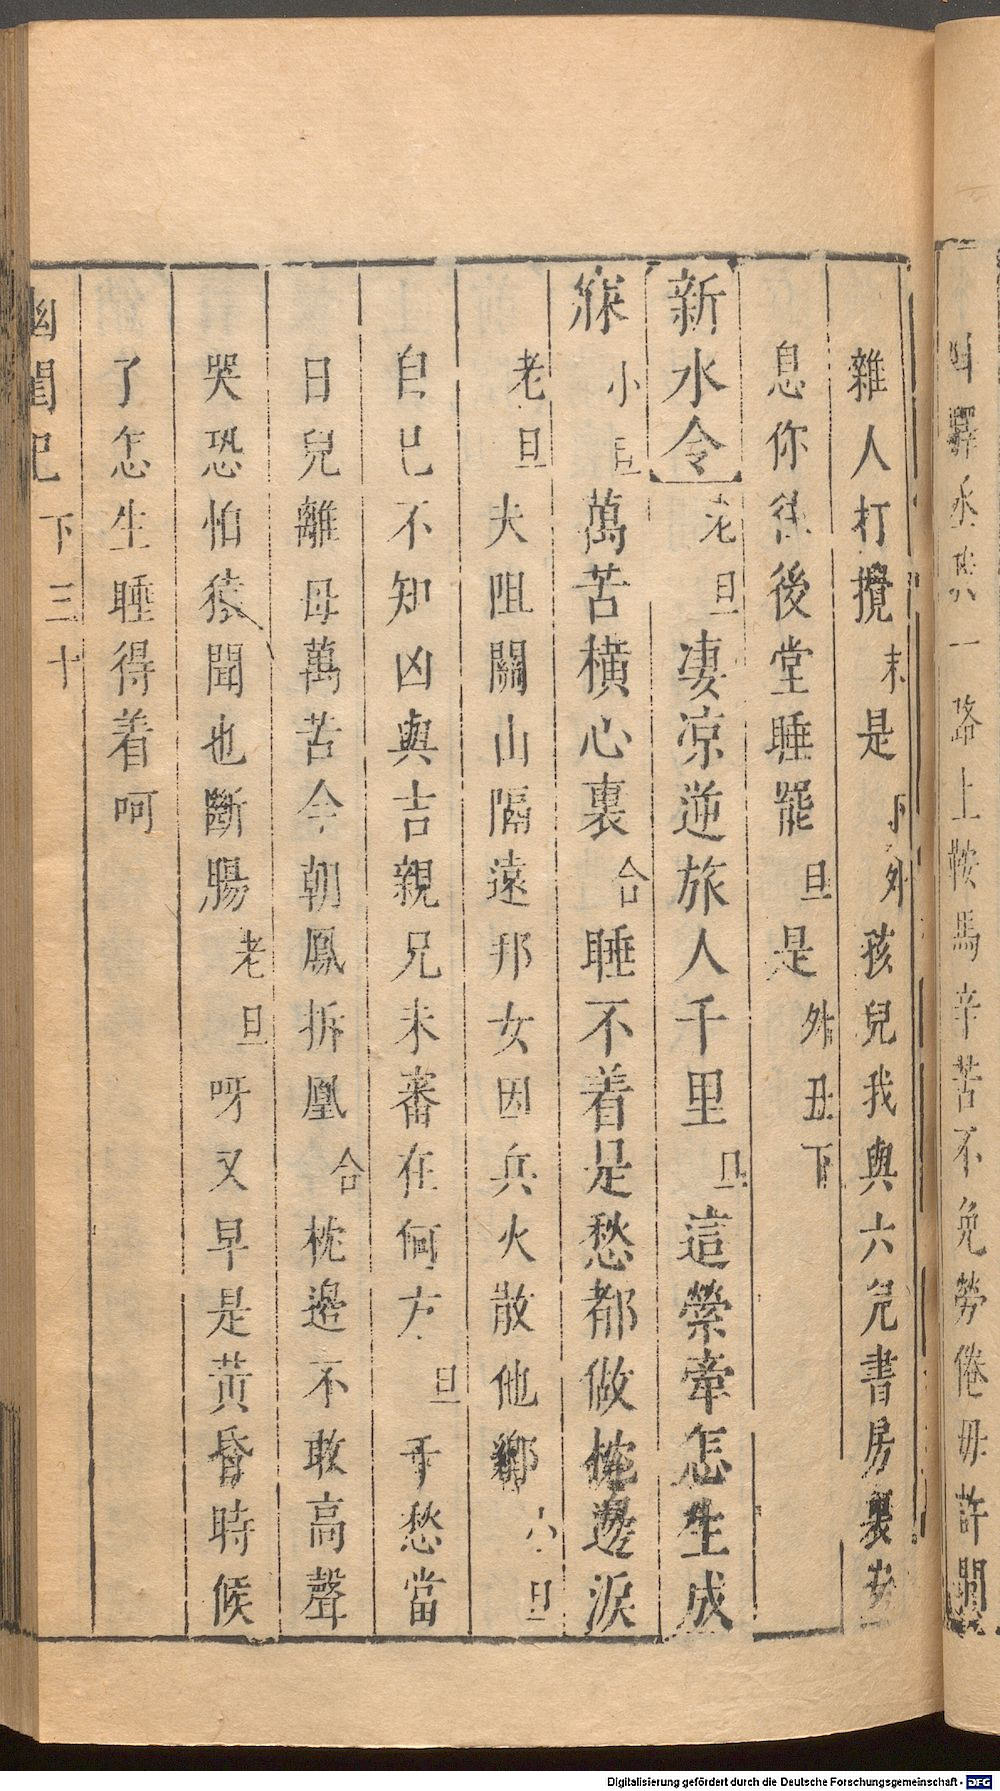 叫驛丞𠔃一路上鞍馬辛苦不免勞倦毋許閑
雜人打攪末是下外孩兒我與六兒書房裏安
息你往後堂睡罷旦是外丑下
新水令老旦凄凉逆旅人千里旦這縈牽怎生成
寐小旦萬苦橫心裏合睡不着是愁都做枕邊淚
老旦夫阻關山隔遠邦女因兵火散他鄉小旦
自已不知凶與吉親兄未審在何方旦千愁當
日兒離母萬苦今朝鳳拆凰合枕邊不敢高聲
哭恐怕猿聞也斷腸老旦呀又早是黃昏時候
了怎生睡得着呵
幽閨記下三十
Digitalisierung gefördert durch die Deutsche Forschungsgemeinschaft - DFG